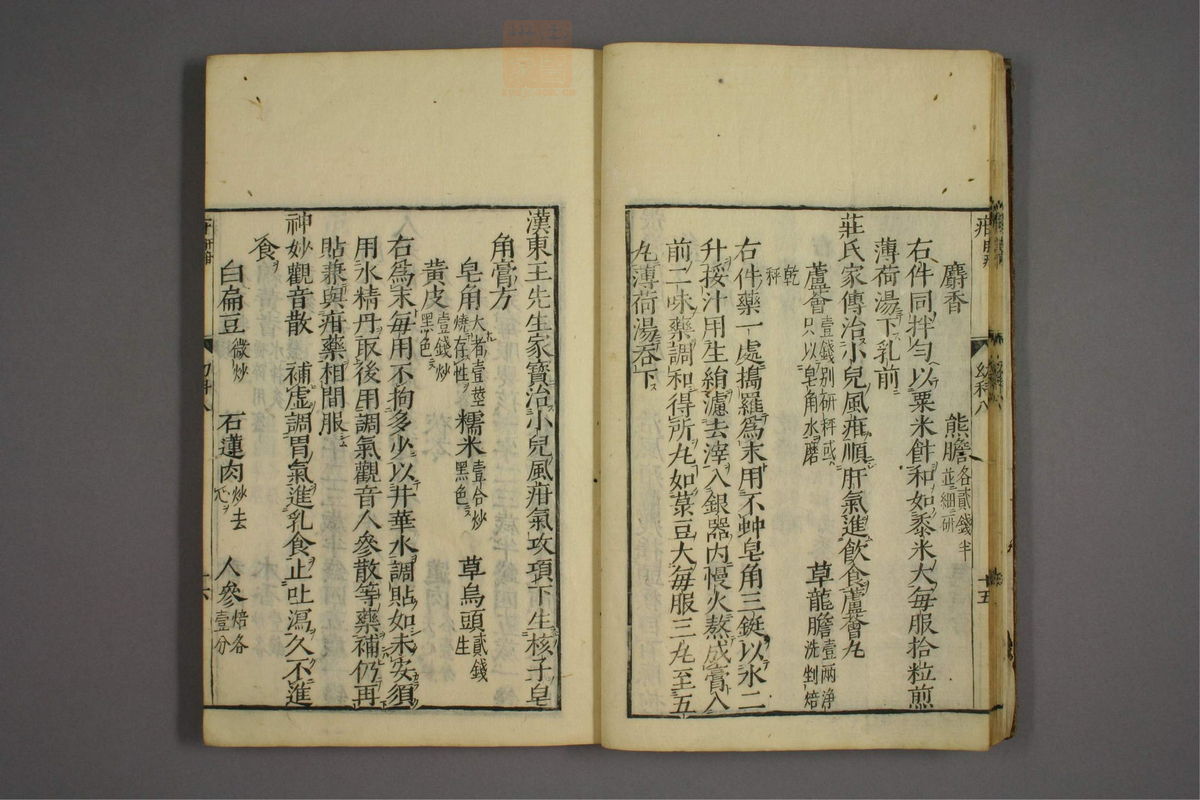 麝香　熊膽各貳錢半並細研
右件同拌勻以粟米飰和如黍米大毎服拾粒煎
薄荷湯下乳前
莊氏家傳治小兒風疳順肝氣進飮食蘆薈丸
蘆薈壹錢別研秤或只以皂角水磨　草龍膽壹兩淨洗剉焙
乾秤
右件藥一處搗羅爲末用不蚛皂角三鋌以水二
升挼汁用生絹濾去滓入銀器内慢火熬成膏入
前二味藥調和得所丸如菉豆大毎服三丸至五
丸薄荷湯呑下
幼科八
十五
漢東王先生家寳治小兒風疳氣攻項下生核子皂
角膏方
皂角大者壹莖燒存性　糯米壹合炒黑色　草烏頭貳錢生
黄皮壹錢炒黑色
右爲末毎用不拘多少以井華水調貼如未安須
用水精丹取後用調氣觀音人參散等藥補仍再
貼兼與疳藥相間服
神妙觀音散　補虛調胃氣進乳食止吐瀉久不進
食
白扁豆微炒　石蓮肉炒去心　人參焙各壹分
十六